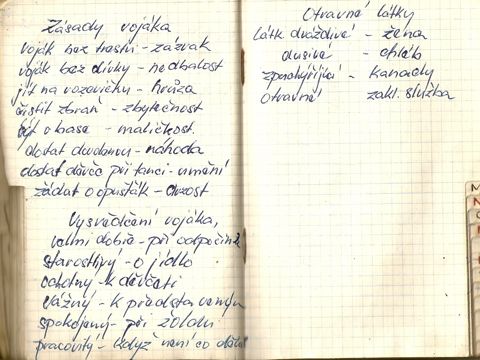 Zásady vojáka
voják bez trestu - zázrak
voják bez dívky - nedbalost
jít na vozovčiky - hrůza
čistit zbraň - zbytečnost
být v base - maličkost
dostat dvodennou - náhoda
dostat děvče při tanci - umění
žádat o opušťák - drzost
Vysvědčení vojáka,
velmi dobře - při odpočink
starostlivý - o jídlo
ochotný - k děvčeti
vážný - k představeným
spokojený - při žoldu
pracovitý - když není co dělat
Otravné látky
látk. dráždivé - žena
dusivé - chléb
zpuchýřující - kanady
otravné zákl. služba